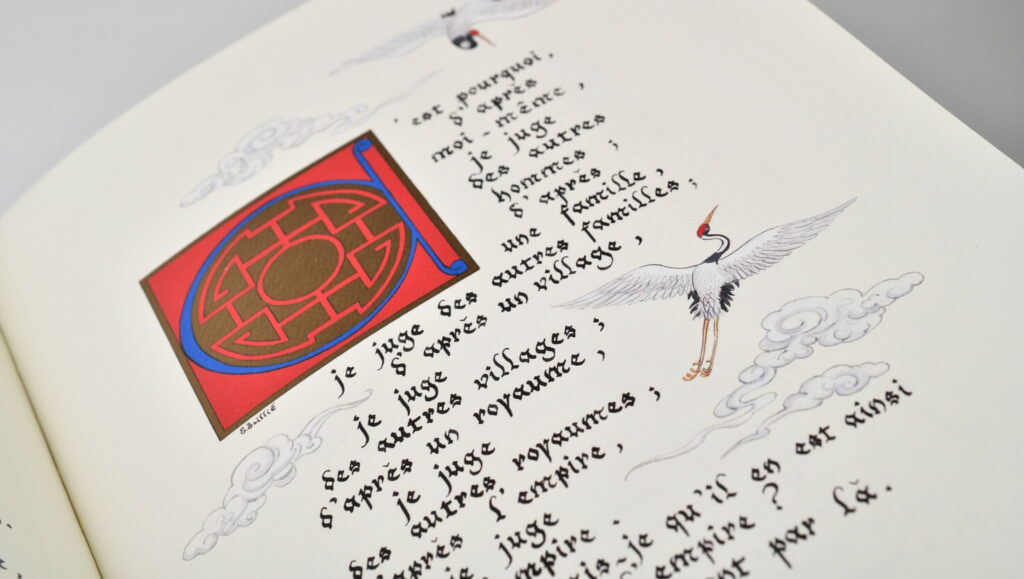 C'est pourquoi,
d'après
moi-même,
je juge
des autres
hommes ;
d'après
une famille,
je juge des autres familles ;
d'après un village,
je juge
des autres villages ;
d'après un royaume,
je juge
des autres royaumes ;
d'après l'empire,
juge
-je qu'il en est ainsi
empire ?
par là.